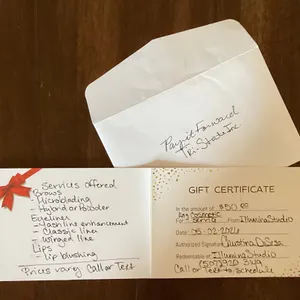 Pay it Forward
Tri-State Inc.
Services offered
Brows
- Microblading
- Hybrid or Powder
Eyeliner
- Lashline enhancement
- Classic liner
- Winged liner
Lips
- Lip blushing
Prices vary Call or Text
GIFT CERTIFICATE
In the amount of $50.00
Any Cosmetic
For 1 Service From Illumina Studio
Date 05-02-2024
Authorized Signature Christina
Redeemable at Illumina Studio
Call or Text to schedule